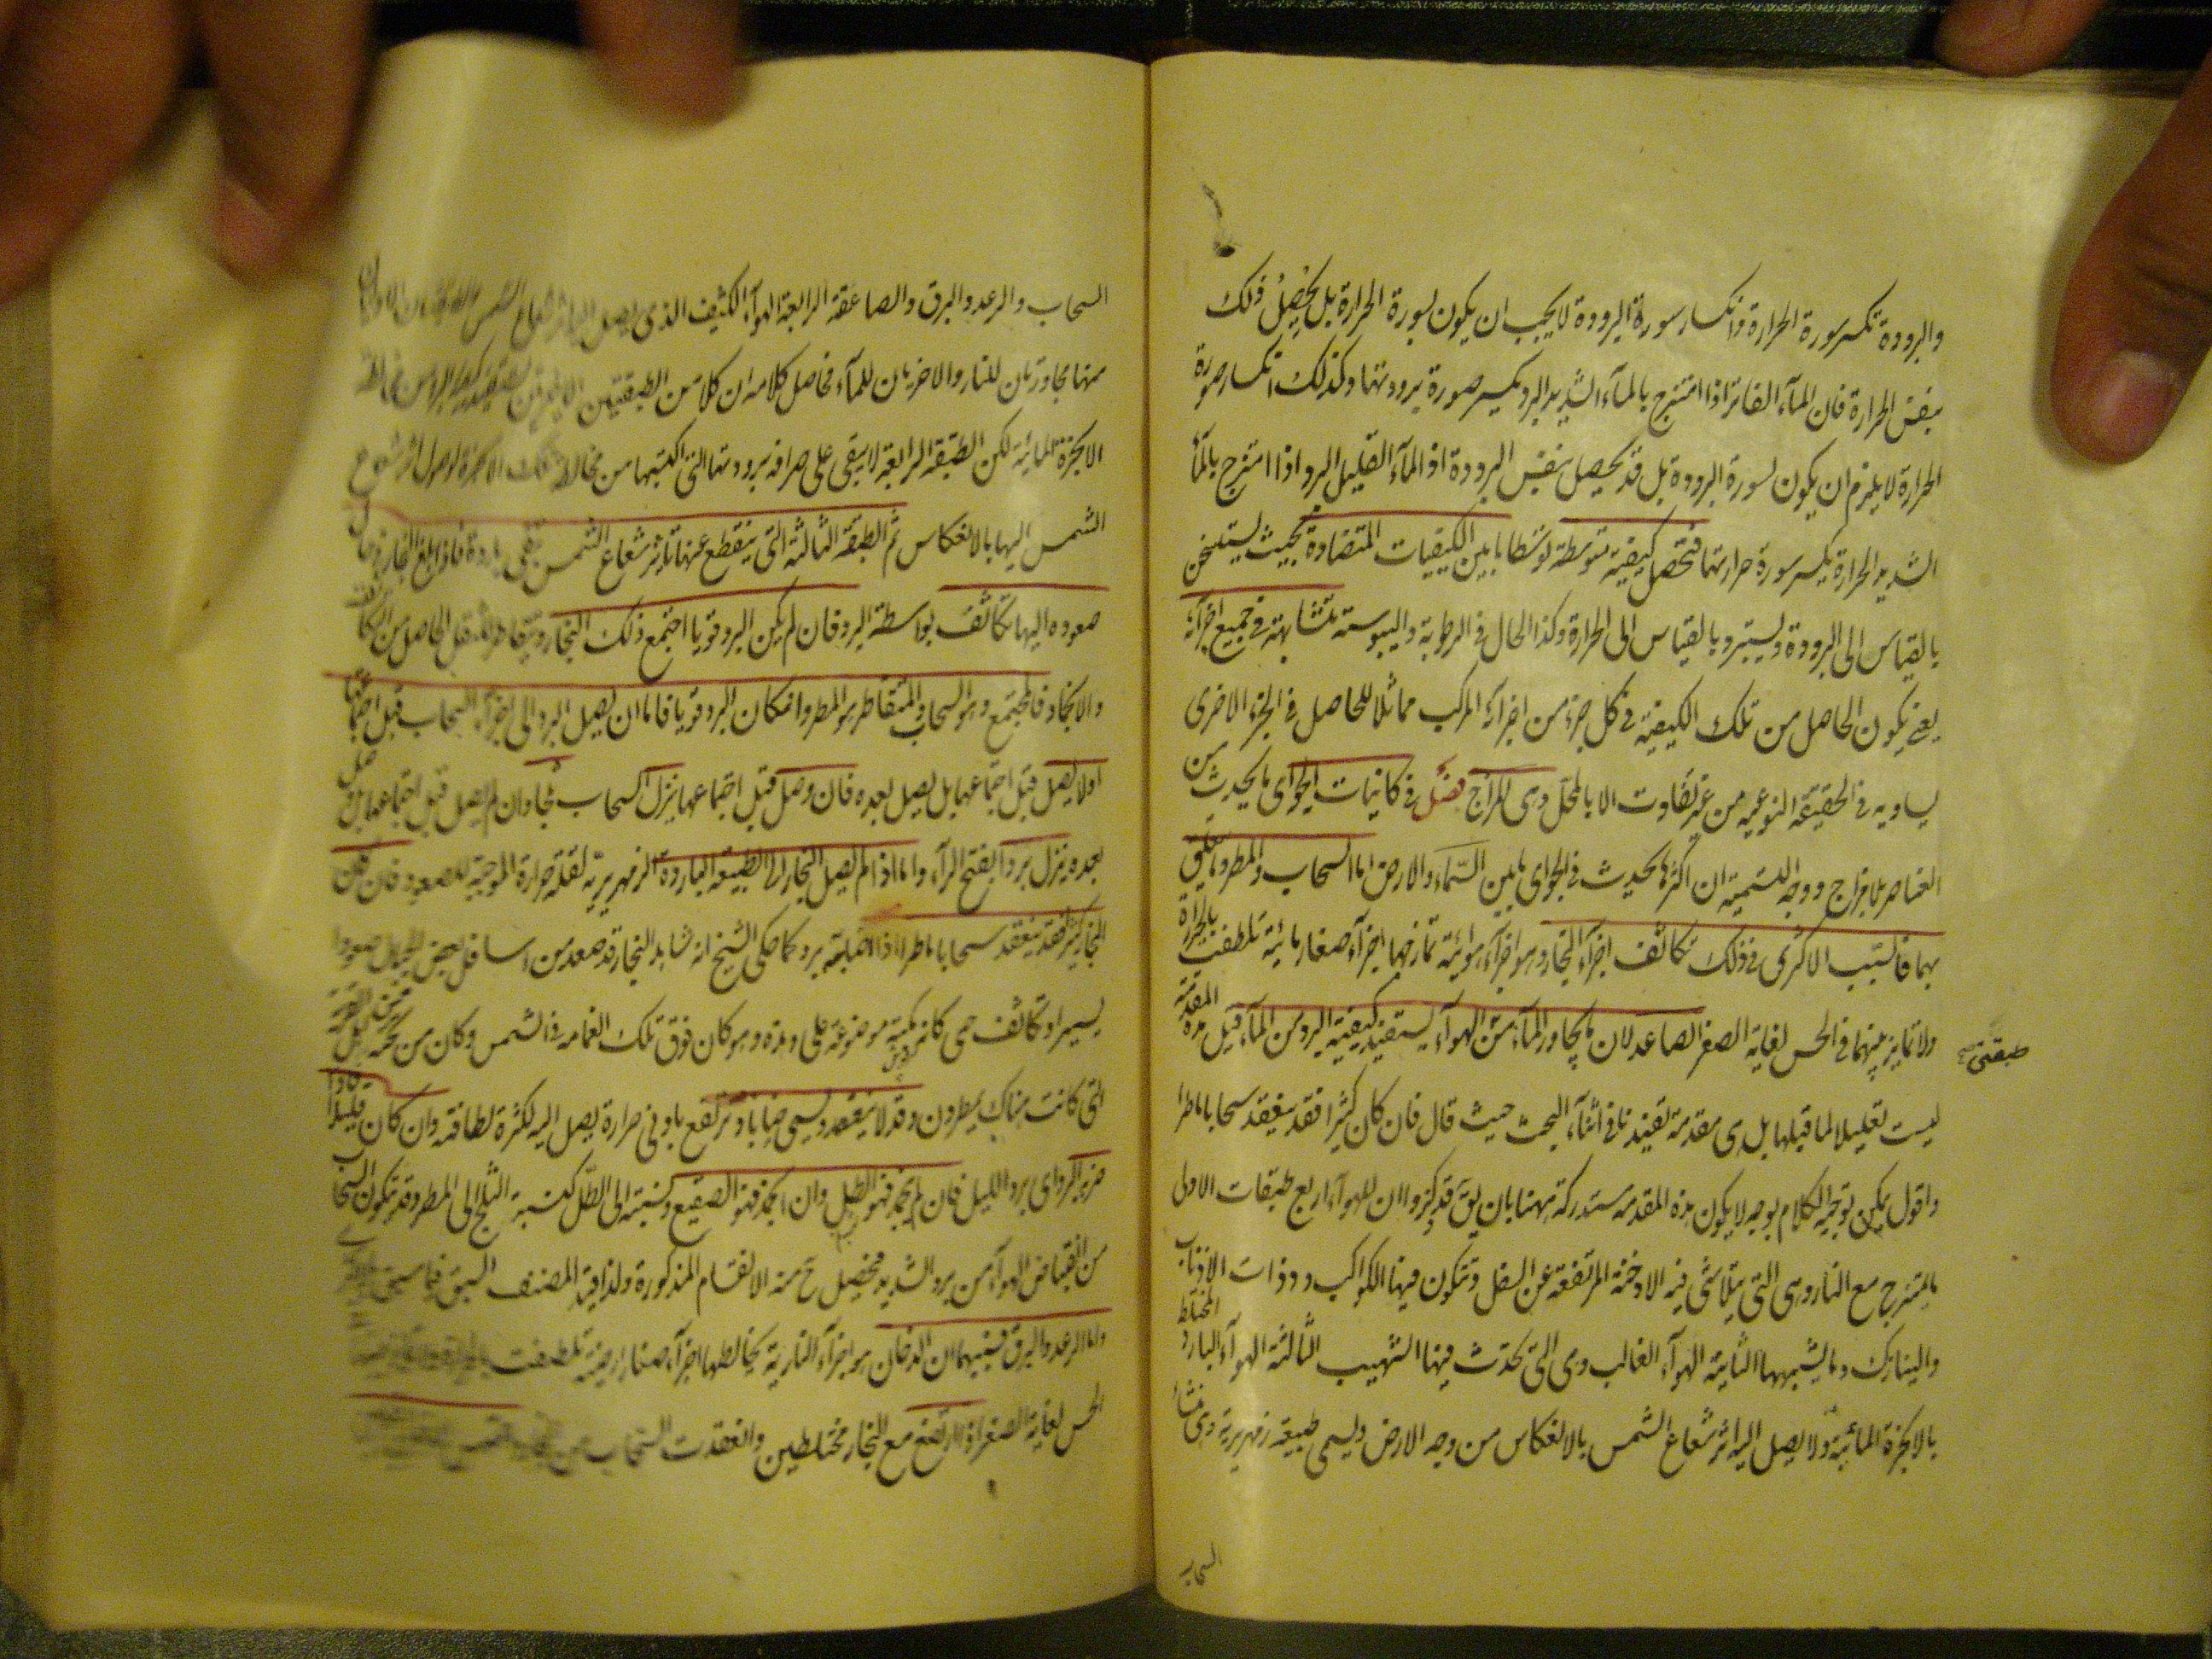 والبرودة تكسر سورة الحرارة وانكسار سورة البرودة لا يجب ان يكون بسورة الحرارة بل يحصل ذلك
بنفس الحرارة فان الماء الفاتر اذا امتزج بالماء الشديد البرد يكسر صورة برودتها وكذلك انكسار صورة
الحرارة لا يلزم ان يكون بسورة البرودة بل قد يحصل بنفس البرودة اذ الماء القليل البرد اذا امتزج بالماء
الشديد الحرارة يكسر سورة حرارتها فتحصل كيفية متوسطة توسطا ما بين الكيفيات المتضادة بحيث يستسخن
بالقياس الى البرودة ويستبرد بالقياس الى الحرارة وكذا الحال في الرطوبة واليبوسة متشابهة في جميع اجزائه
يعني يكون الحاصل من تلك الكيفية في كل جزء من اجزاء المركب مماثلا للحاصل في الجزء الاخرى
يساويه في الحقيقة النوعية من غير تفاوت الا بالمحل وهي المزاج فصل في كائنات الجو اي ما يحدث من
العناصر بلا مزاج ووجه التسمية ان اكثرها يحدث في الجو اي ما بين السماء والارض اما السحاب والمطر وما يتعلق
بهما فالسبب الاكثري في ذلك تكاثف اجزاء البخار وهو اجزاء هوائية تمازجها اجزاء صغار مائية تلطفت بالحرارة
ولا تمايز بينهما في الحس لغاية الصغر الصاعد لان ما يجاور الماء من الهواء يستفيد كيفية البرد من الماء قيل هذه المقدمة
طبقتي
ليست تعليلا لما قبلها بل هي مقدمة تفيدنا في اثناء البحث حيث قال فان كان كثيرا فقد ينعقد سحابا ماطرا
واقول يمكن توجيه الكلام بوجه لا يكون هذه المقدمة مستدركة ههنا بان يق قد ذكروا ان للهواء اربع طبقات الاولى
ما يمتزج مع النار وهي التي يتلاشى فيه الادخنة المرتفعة عن السفل وتتكون فيها الكواكب وذوات الاذناب
والنيازك وما يشبهها الثانية الهواء الغالب وهي التي تحدث فيها الشهب الثالثة الهواء البارد المختلط
بالابخرة المائية ولا يصل اليه اثر شعاع الشمس بالانعكاس من وجه الارض ويسمى طبقة زمهريرية وهي منشأ
السحاب
السحاب والرعد والبرق والصاعقة الرابعة الهواء الكثيف الذي يصل اليه اثر شعاع الشمس
منها مجاورتان للنار والاخريان للماء فحاصل كلامه ان كلا من الطبقتين
الابخرة المائية لكن الطبقة الرابعة لا يبقى على صرافة برودتها التي اكتسبها من مخالطة تلك الابخرة لوصول اثر شعاع
الشمس اليها بالانعكاس ثم الطبقة الثالثة التي ينقطع عنها تاثير شعاع الشمس تبقى باردة فاذا بلغ البخار في
صعوده اليها تكاثف بواسطة البرد فان لم يكن البرد قويا اجتمع ذلك البخار وتقاطر للثقل الحاصل من التكاثف
والانجماد فالمجتمع وهو السحاب والمتقاطر هو المطر وان كان البرد قويا فاما ان يصل البرد الى اجزاء السحاب قبل اجتماعها
او لا يصل قبل اجتماعها بل يصل بعده فان وصل قبل اجتماعها ينزل السحاب ثلجا وان لم يصل قبل اجتماعها بل وصل
بعده ينزل بردا بفتح الراء واما اذا لم يصل البخار الى الطبقة الباردة الزمهريرية لقلة حرارة الموجبة للصعود فان كان
البخار كثيرا فقد ينعقد سحابا ماطرا اذا اصابه برد كما حكى الشيخ انه شاهد البخار قد صعد من اسافل بعض الجبال صعودا
يسيرا وتكاثف حتى كانه مكبة موضوعة على وهدة وهو كان فوق تلك الغمامة في الشمس وكان من تحته من اهل القرية
التي كانت هناك يمطرون وقد لا ينعقد ويسمى ضبابا ويرتفع بادنى حرارة يصل اليه لكثرة لطافته وان كان قليلا فاذا
ضربه البرد اي برد الليل فان لم ينجمد فهو الطل وان انجمد فهو الصقيع ونسبته الى الطل كنسبة الثلج الى المطر وقد يتكون السحاب
من انقباض الهواء من برد الشديد فيحصل ح منه الاقسام المذكورة ولذا قيد المصنف السبب
واما الرعد والبرق فسببهما ان الدخان هو اجزاء النارية يخالطها اجزاء صغار ارضية تلطفت
الحس لغاية الصغر اذا ارتفع مع البخار مختلطين وانعقدت السحاب من